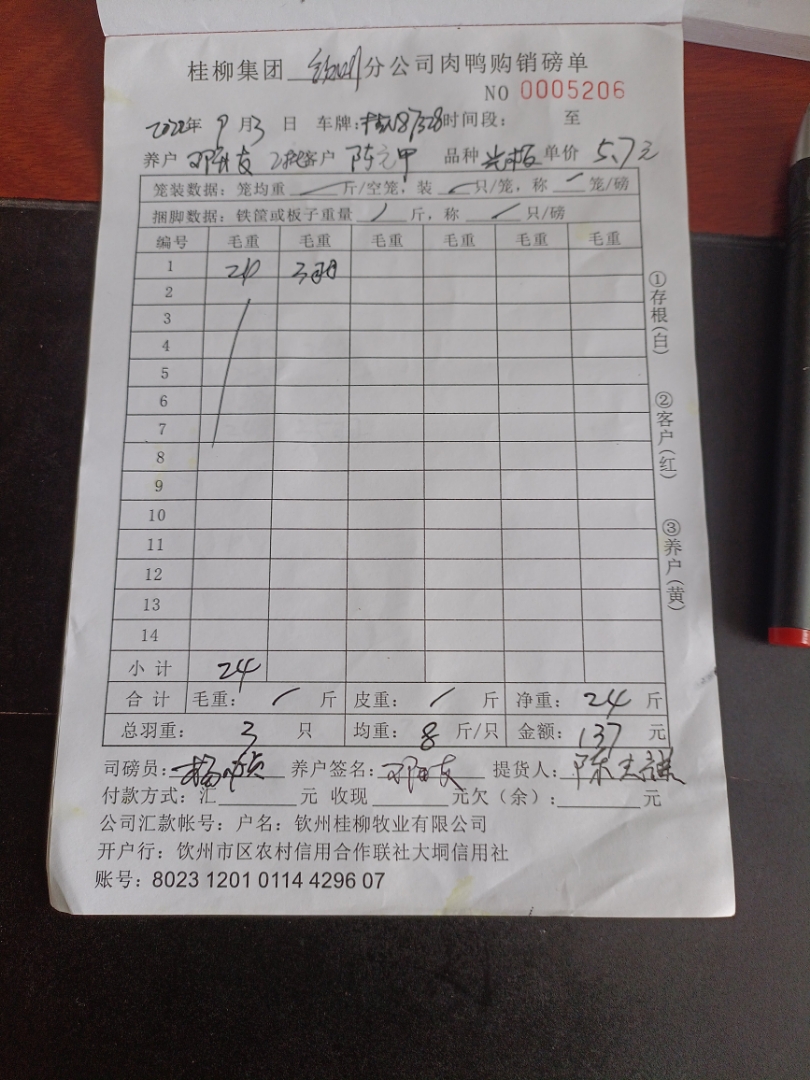 桂柳集团 钦州 分公司肉鸭购销磅单
NO 0005206
2022年 9月3日 车牌: 时间段: 至
养户 邓 友 客户 陈元甲 品种 单价 5.7元
笼装数据: 笼均重 / 斤/空笼, 装 / 只/笼, 称 / 笼/磅
捆脚数据: 铁筐或板子重量 / 斤, 称 / 只/磅
编号 毛重 毛重 毛重 毛重 毛重 毛重
1 24
2
3
4
5
6
7
8
9
10
11
12
13
14
小计 24
合计 毛重: / 斤 皮重: / 斤 净重: 24 斤
总羽重: 3 只 均重: 8 斤/只 金额: 137 元
司磅员: 杨 养户签名: 邓 友 提货人: 陈
付款方式: 汇 元 收现 元欠(余): 元
公司汇款帐号: 户名: 钦州桂柳牧业有限公司
开户行: 钦州市区农村信用合作联社大垌信用社
账号: 8023 1201 0114 4296 07
①存根(白)
②客户(红)
③养户(黄)